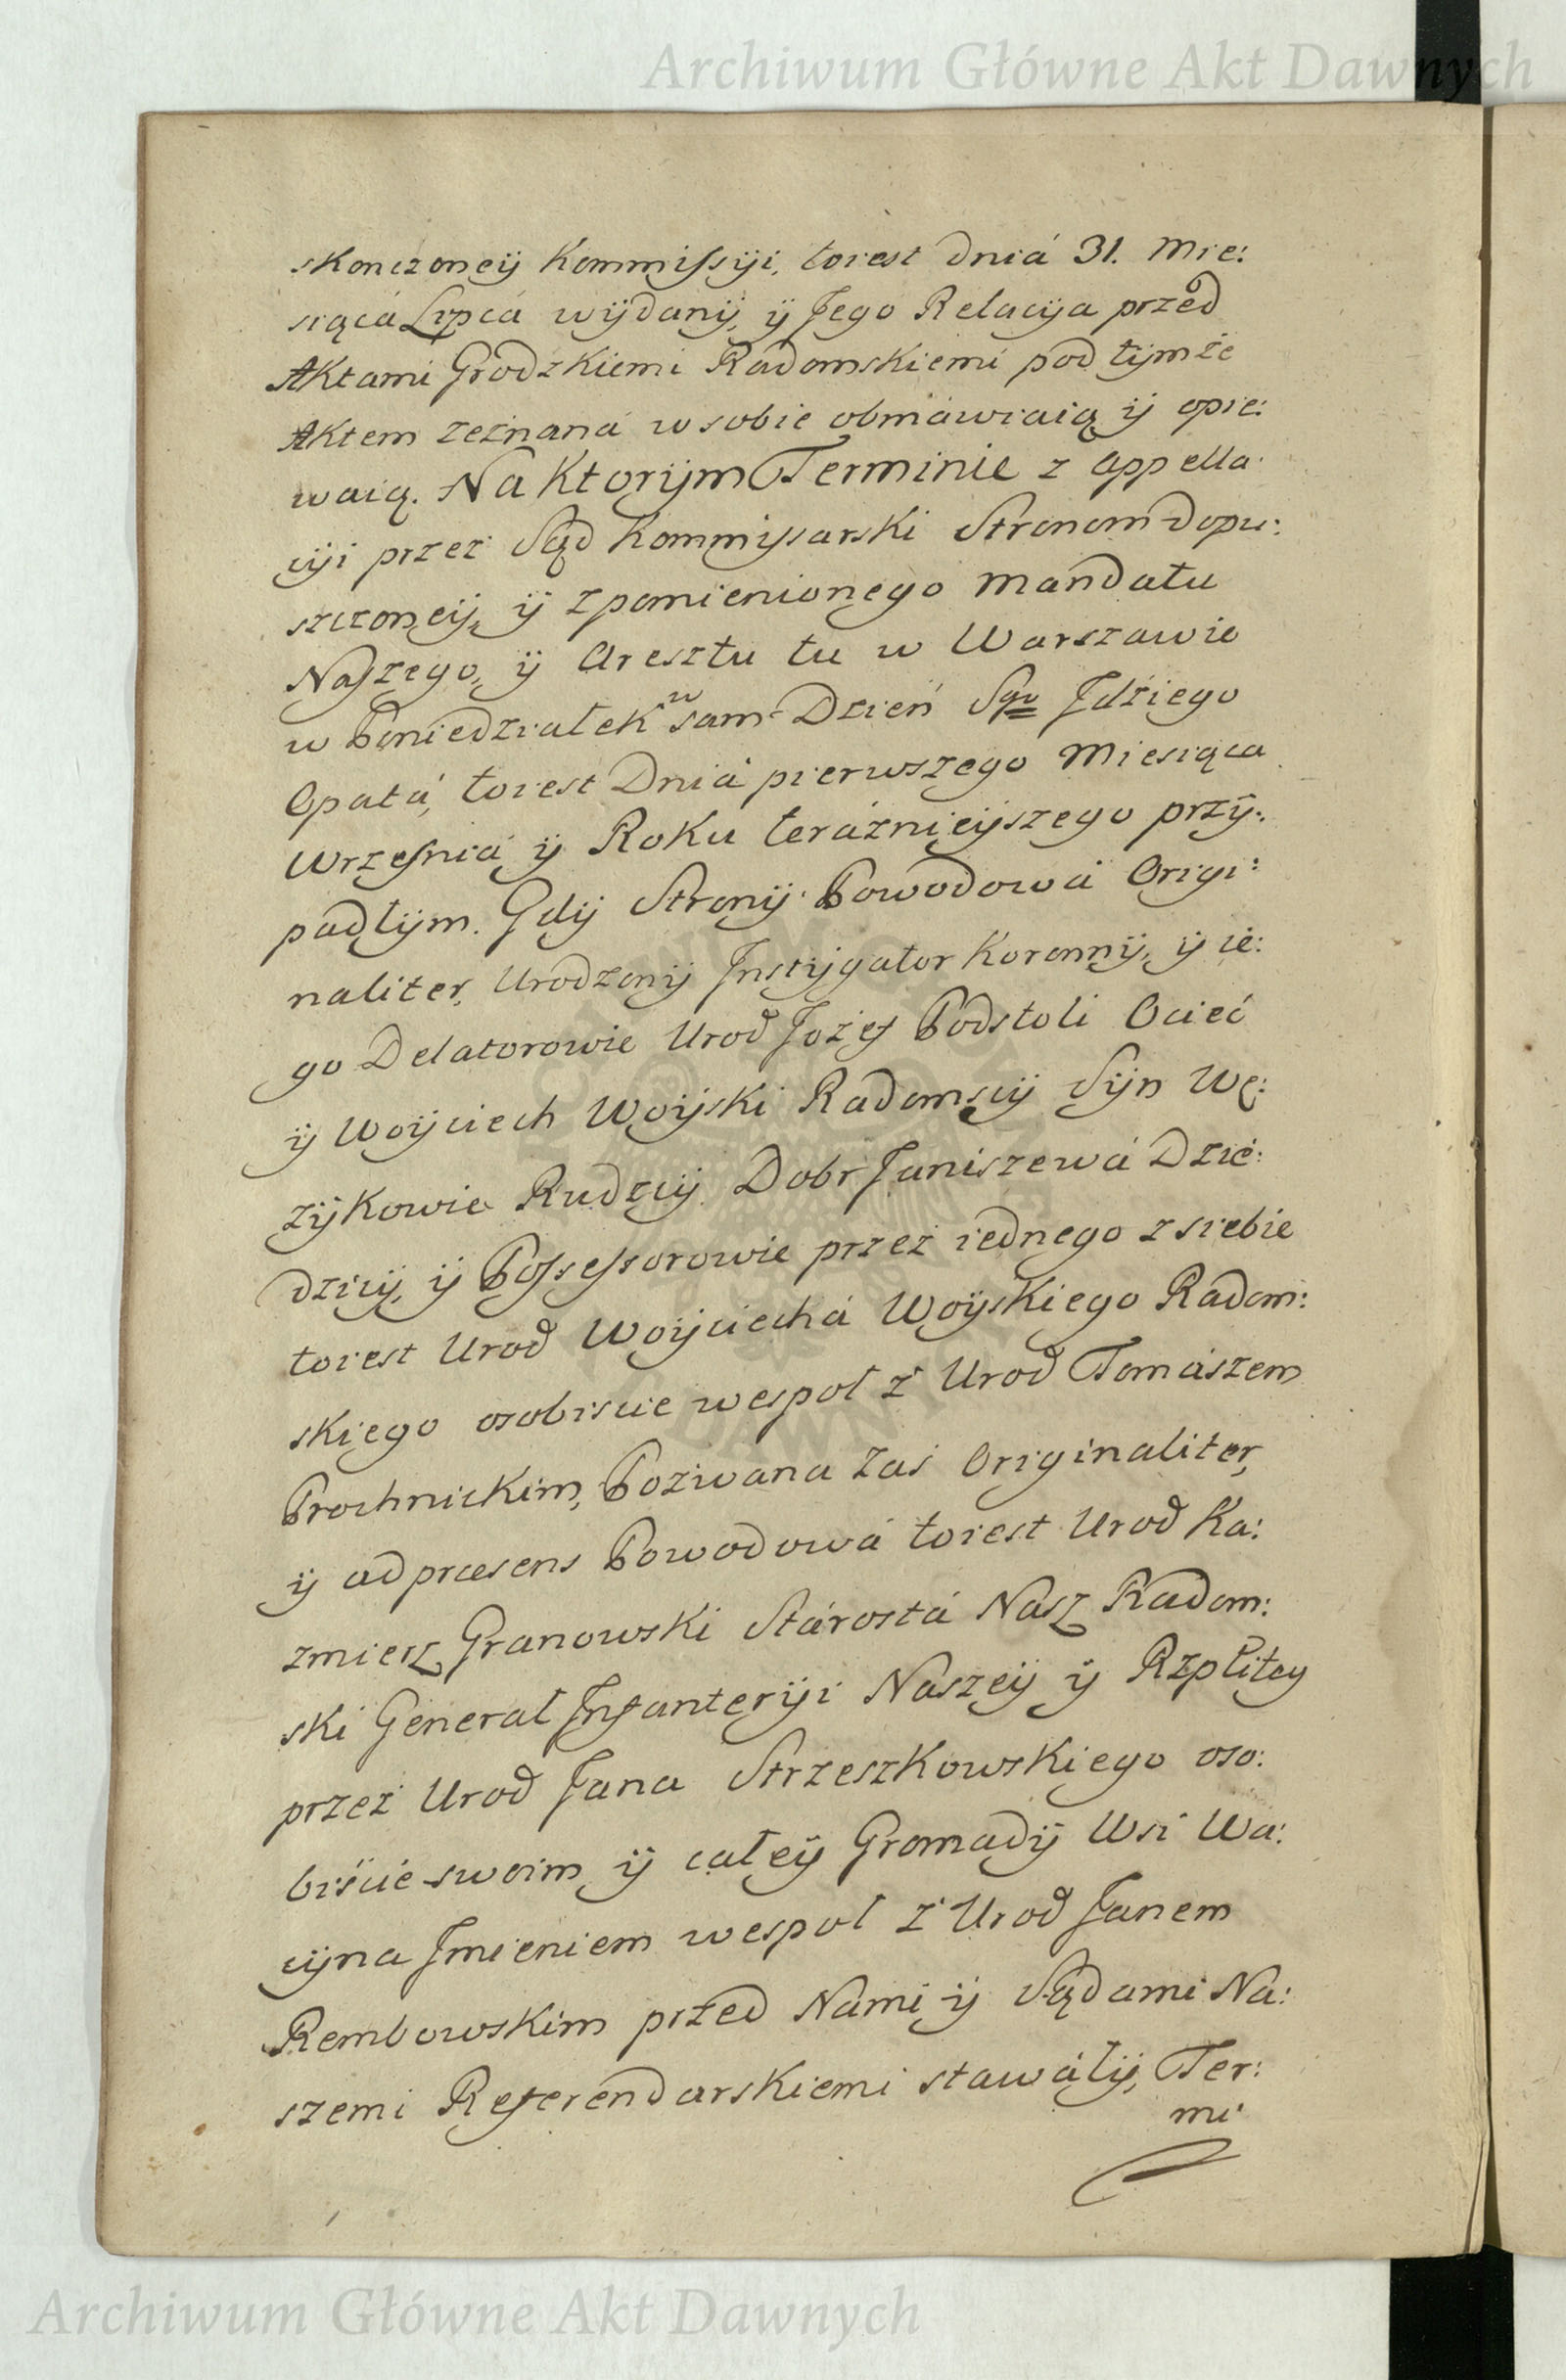 Archiwum Główne Akt Dawnych
skonczoneÿ Kommissÿi, toiest Dniá 31. Mie:
siącá Lipcá wÿdanÿ, ÿ Jego Relacÿa przed
Aktami Grodzkiemi Radomskiemi pod tÿmże
Aktem zeżnaná w sobie obmáwiaią ÿ opie:
waią. Na KtorÿmTerminie z appella:
cÿi przez Sąd Kommissarski Stronom dopu:
szczoneÿ, ÿ zpomienionego Mandatu
Naszego, ÿ Aresztu tu w Warszawie
w Poniedziałek w sam Dzień Sgo Jdziego
Opatá, toiest Dniá pierwszego Miesiąca
Wrzesniá ÿ Roku teráznieÿszego przÿ:
padłÿm. Gdÿ Stronÿ Powodowá Origi:
naliter, Urodzonÿ Jnstÿgator Koronnÿ, ÿ ie:
go Delatorowie Urod Jozef Podstoli Ociec
ÿ Woÿciech Woÿski Radomscÿ Sÿn Wę:
zÿkowie Rudzcÿ Dobr Janiszewá Dzie:
dzicÿ, ÿ Possessorowie przez iednego z siebie
toiest Urod Woÿciechá Woÿskiego Radom:
skiego osobiscie wespoł z Urod Tomászem
Prochnickim, Pozwana zaś Originaliter,
ÿ ad præsens Powodowá toiest Urod Ka:
zmierz Granowski Stárostá Nasz Radom:
ski Generał Jnfanterÿi Naszeÿ ÿ Rzpłitey
przez Urod Jana Strzeszkowskiego oso:
biście swoim ÿ całeÿ Gromadÿ Wsi Wa:
cÿna Jmieniem wespoł z Urod Janem
Rembowskim przed Nami ÿ Sądami Na:
szemi Referendarskiemi stawáłÿ, Ter:
mi
Archiwum Główne Akt Dawnych